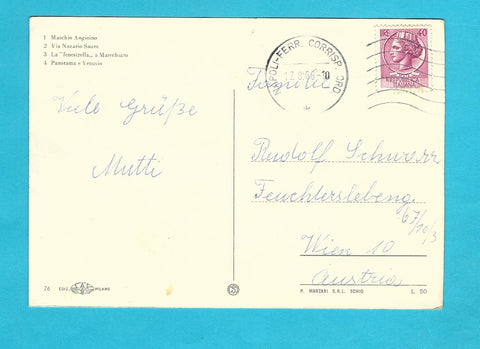 1 Maschio Angioino
2 Via Nazario Sauro
3 La "fenestrella„ a Marechiaro
4 Panorama e Vesuvio
Viele Grüße
Mutti
NAPOLI-FERR. CORRISP.
17.8.66-10
LIRE 40
Familie
Rudolf Schwarz
Feuchterslebeng.
67/10/3
Wien 10
Austria
76 EDIZ. MILANO
P. MARZARI S.R.L. SCHIO
L. 50